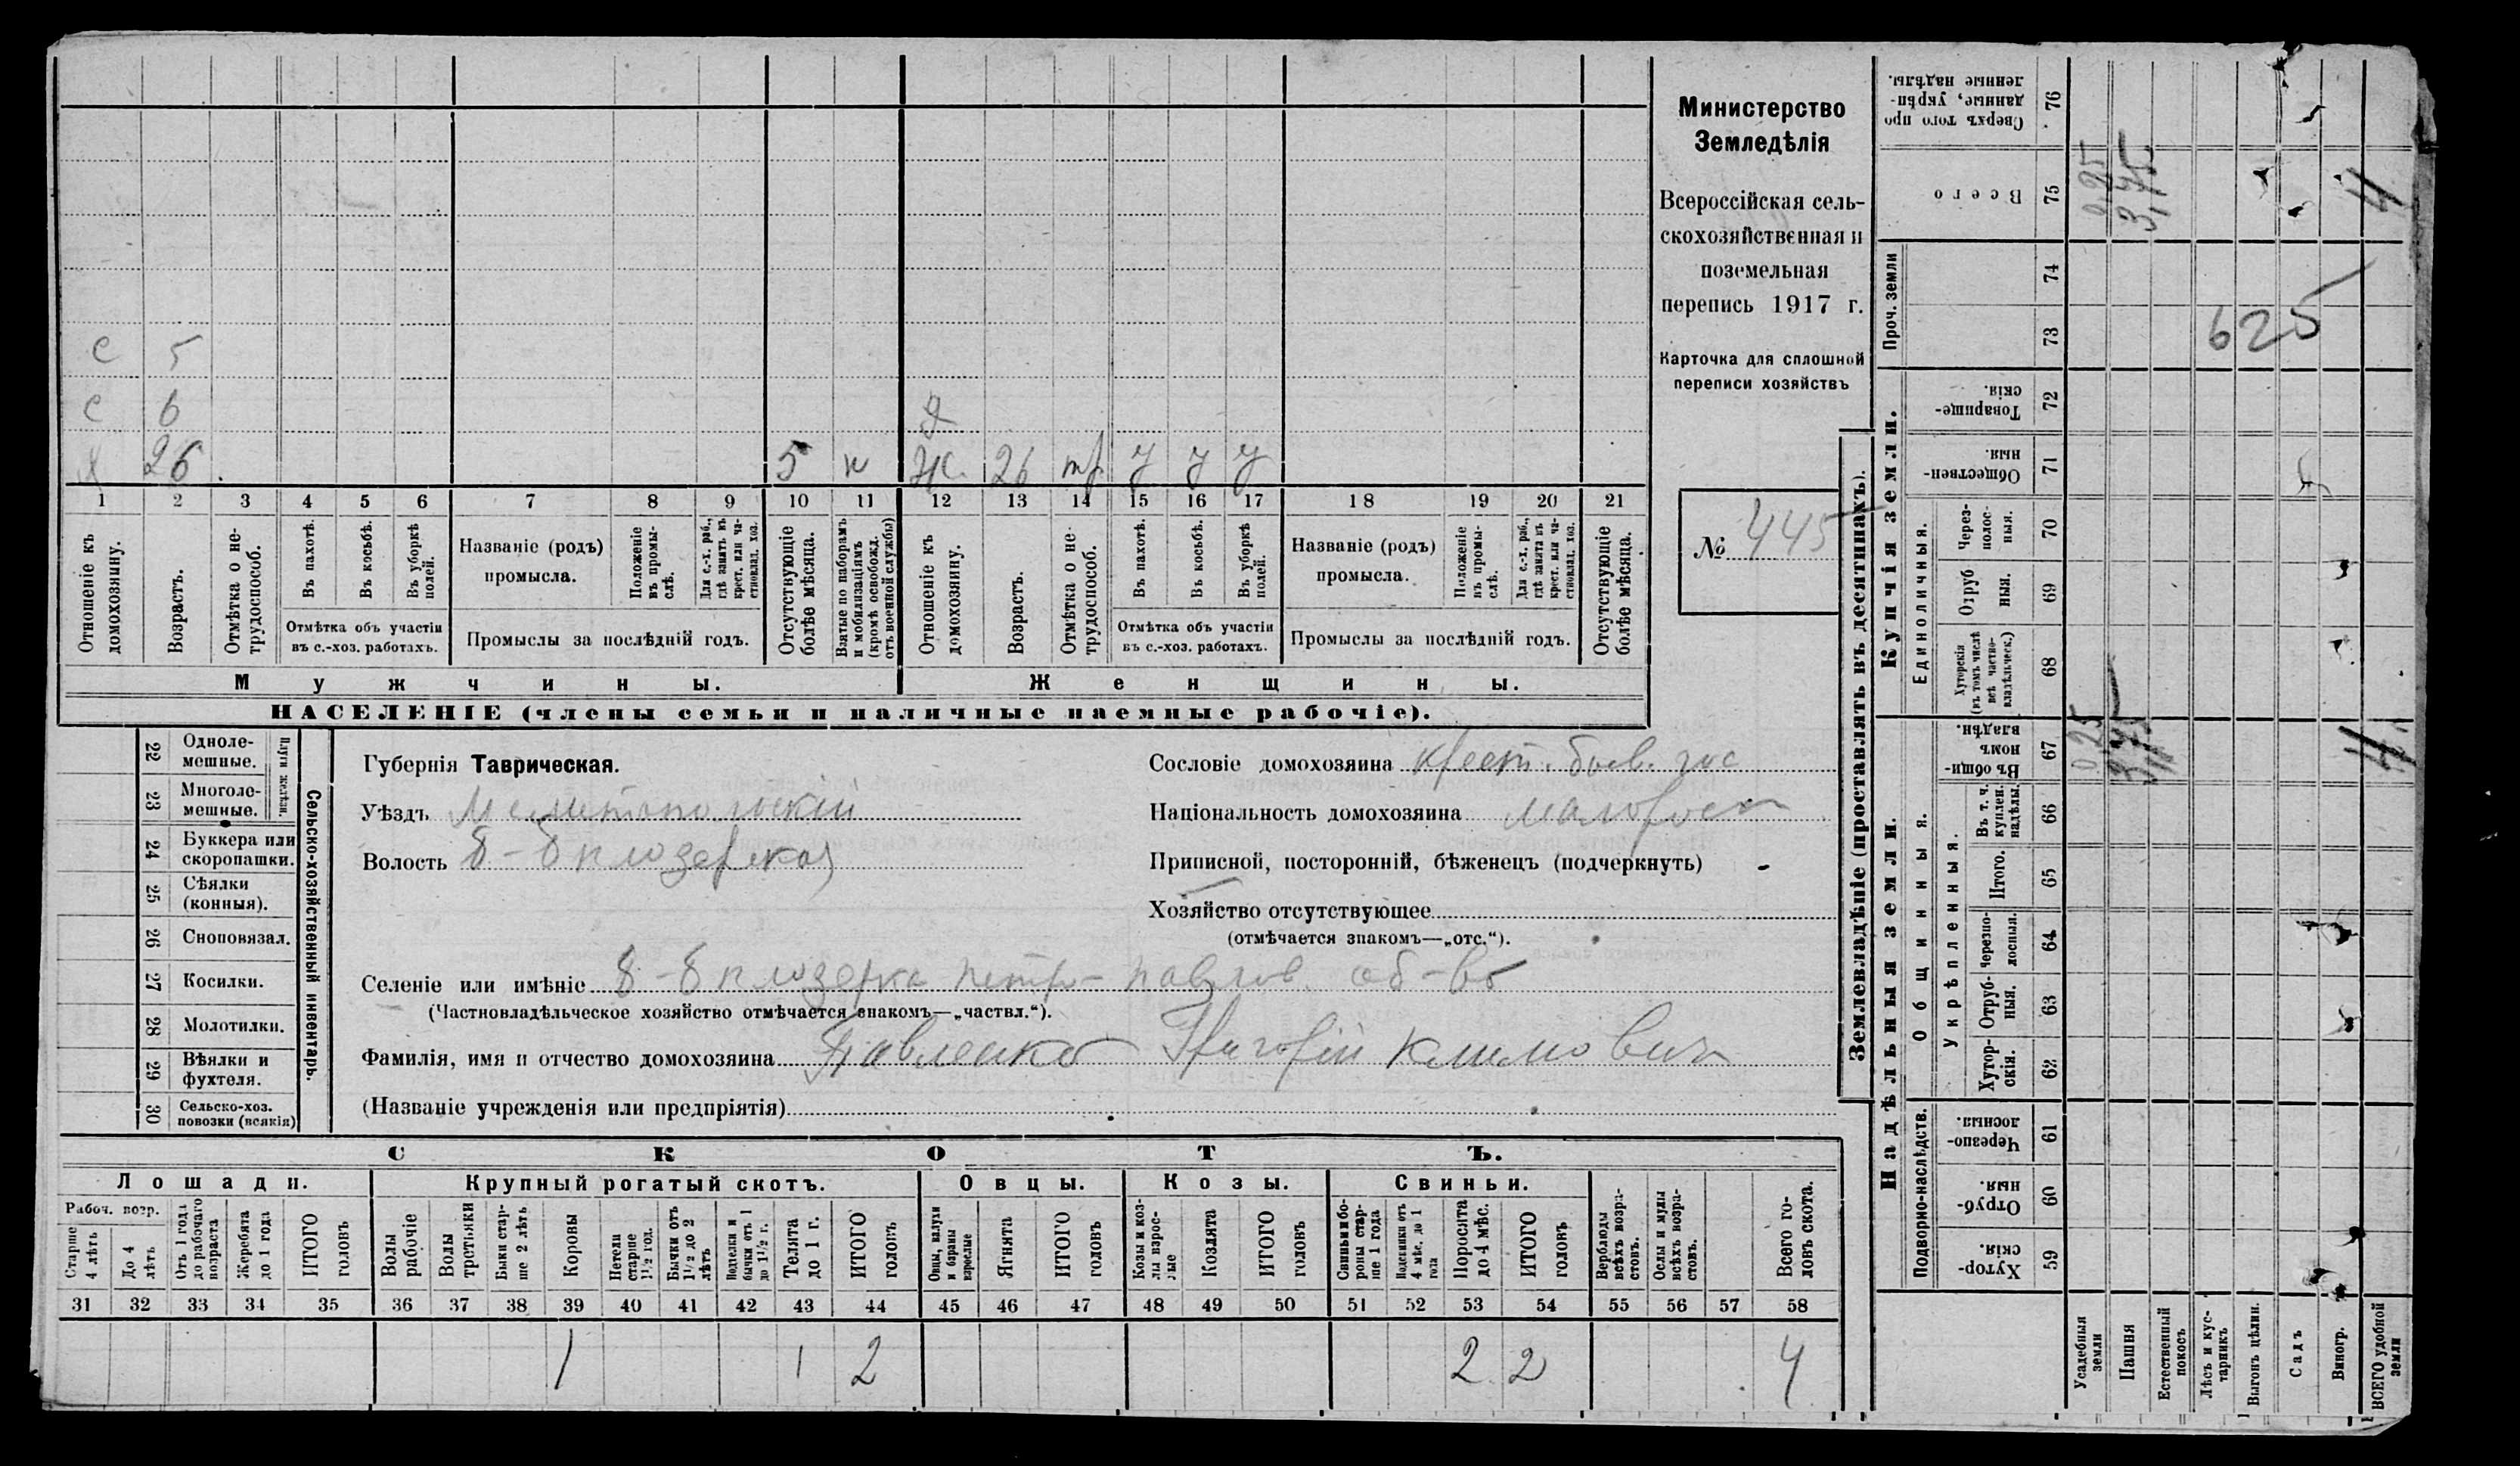 С 5
С 6
Х 26 5 н
Я
Ж. 26 тр У У У
1 2 3 4 5 6 7 8 9 10 11 12 13 14 15 16 17 18 19 20 21
Отношеніе къ домохозяину.
Возрастъ.
Отмѣтка о не-
трудоспособ.
Въ пахотѣ.
Въ косьбѣ.
Въ уборкѣ
полей.
Отмѣтка объ участіи
въ с.-хоз. работахъ.
Названіе (родъ)
промысла.
Положеніе
въ промы-
слѣ.
Для с.-х. раб.,
гдѣ занятъ въ
крест. или ча-
стновлад. хоз.
Промыслы за послѣдній годъ.
Отсутствующіе
болѣе мѣсяца.
Взятые по наборамъ
и мобилизаціямъ
(кромѣ освобожд.
отъ военной службы)
Отношеніе къ
домохозяину.
Возрастъ.
Отмѣтка о не-
трудоспособ.
Въ пахотѣ.
Въ косьбѣ.
Въ уборкѣ
полей.
Отмѣтка объ участіи
въ с.-хоз. работахъ.
Названіе (родъ)
промысла.
Положеніе
въ промы-
слѣ.
Для с.-х. раб.,
гдѣ занята въ
крест. или ча-
стновлад. хоз.
Промыслы за послѣдній годъ.
Отсутствующіе
болѣе мѣсяца.
Мужчины.
Женщины.
НАСЕЛЕНІЕ (члены семьи и наличные наемные рабочіе).
Министерство
Земледѣлія
Всероссійская сель-
скохозяйственная и
поземельная
перепись 1917 г.
Карточка для сплошной
переписи хозяйствъ
№ 445
22 Одноле-
мешные.
23 Многоле-
мешные.
Плуги желѣзн.
24 Буккера или
скоропашки.
25 Сѣялки
(конныя).
26 Сноповязал.
27 Косилки.
28 Молотилки.
29 Вѣялки и
фухтеля.
30 Сельско-хоз.
повозки (всякія)
Сельско-хозяйственный инвентарь.
Губернія Таврическая.
Уѣздъ Мелитопольскій
Волость Б-Бплозерская
Сословіе домохозяина крест. бывш. гос
Національность домохозяина малоросъ
Приписной, посторонній, бѣженецъ (подчеркнуть)
Хозяйство отсутствующее
(отмѣчается знакомъ—„отс.“).
Селеніе или имѣніе Б-Бплозерка Петро-Павлов. об-во
(Частновладѣльческое хозяйство отмѣчается знакомъ—„частвл.“).
Фамилія, имя и отчество домохозяина Павленко Григорій Климович
(Названіе учрежденія или предпріятія)
СКОТЪ.
Лошади. Крупный рогатый скотъ. Овцы. Козы. Свиньи.
Рабоч. возр.
Старше
4 лѣтъ
До 4
лѣтъ
Отъ 1 года
до рабочаго
возраста
Жеребята
до 1 года
ИТОГО
головъ
Волы
рабочіе
Волы
третьяки
Быки стар-
ше 2 лѣтъ
Коровы
Нетели
старше
1½ год.
Бычки отъ
1½ до 2
лѣтъ
Подтелки и
бычки отъ 1
до 1½ г.
Телята
до 1 г.
ИТОГО
головъ
Овцы, валухи
и бараны
взрослые
Ягнята
ИТОГО
головъ
Козы и коз-
лы взрос-
лые
Козлята
ИТОГО
головъ
Свиньи и бо-
ровы стар-
ше 1 года
Подсвинки отъ
4 мѣс. до 1
года
Поросята
до 4 мѣс.
ИТОГО
головъ
Верблюды
всѣхъ возра-
стовъ.
Ослы и мулы
всѣхъ возра-
стовъ.
Всего го-
ловъ скота.
31 32 33 34 35 36 37 38 39 40 41 42 43 44 45 46 47 48 49 50 51 52 53 54 55 56 57 58
1 1 2 2 2 4
Землевладѣніе (проставлять въ десятинахъ).
Сверхъ того про
данные, укрѣп-
ленные надѣлы.
76
Всего
75
0,25
3,75
4
Проч. земли
74
73
625
Купчія земли.
Товарище-
скія.
72
Обществен-
ныя.
71
Единоличныя.
Через-
полос-
ныя.
70
Отруб
ныя.
69
Хуторскія
(въ томъ числѣ
всѣ частно-
владѣльческ.)
68
Надѣльныя земли.
Общинныя.
Въ общи-
номъ
владѣн.
67
0,25
3,75
4
Укрѣпленныя.
Въ т. ч.
куплен.
надѣлы.
66
Итого.
65
Черезпо-
лосныя.
64
Отруб-
ныя.
63
Хутор-
скія.
62
Подворно-наслѣдств.
Черезпо-
лосныя.
61
Отруб-
ныя.
60
Хутор-
скія.
59
Усадебныя
земли
Пашня
Естественный
покосъ
Лѣсъ и кус-
тарникъ
Выгонъ цѣлин.
Садъ
Виногр.
ВСЕГО удобной
земли